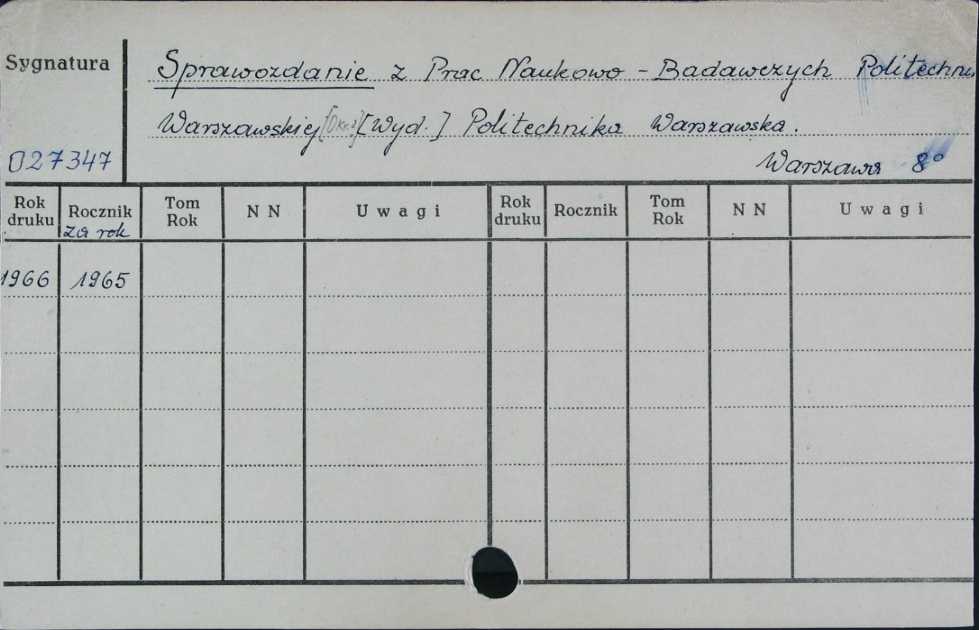 Sygnatura
Sprawozdanie z Prac Naukowo-Badawczych
Warszawskiej [Wyd.] Politechnika Warszawska.
027347
Warszawa 8°
Rok druku Rocznik za rok Tom Rok NN Uwagi Rok druku Rocznik Tom Rok NN Uwagi
1966 1965